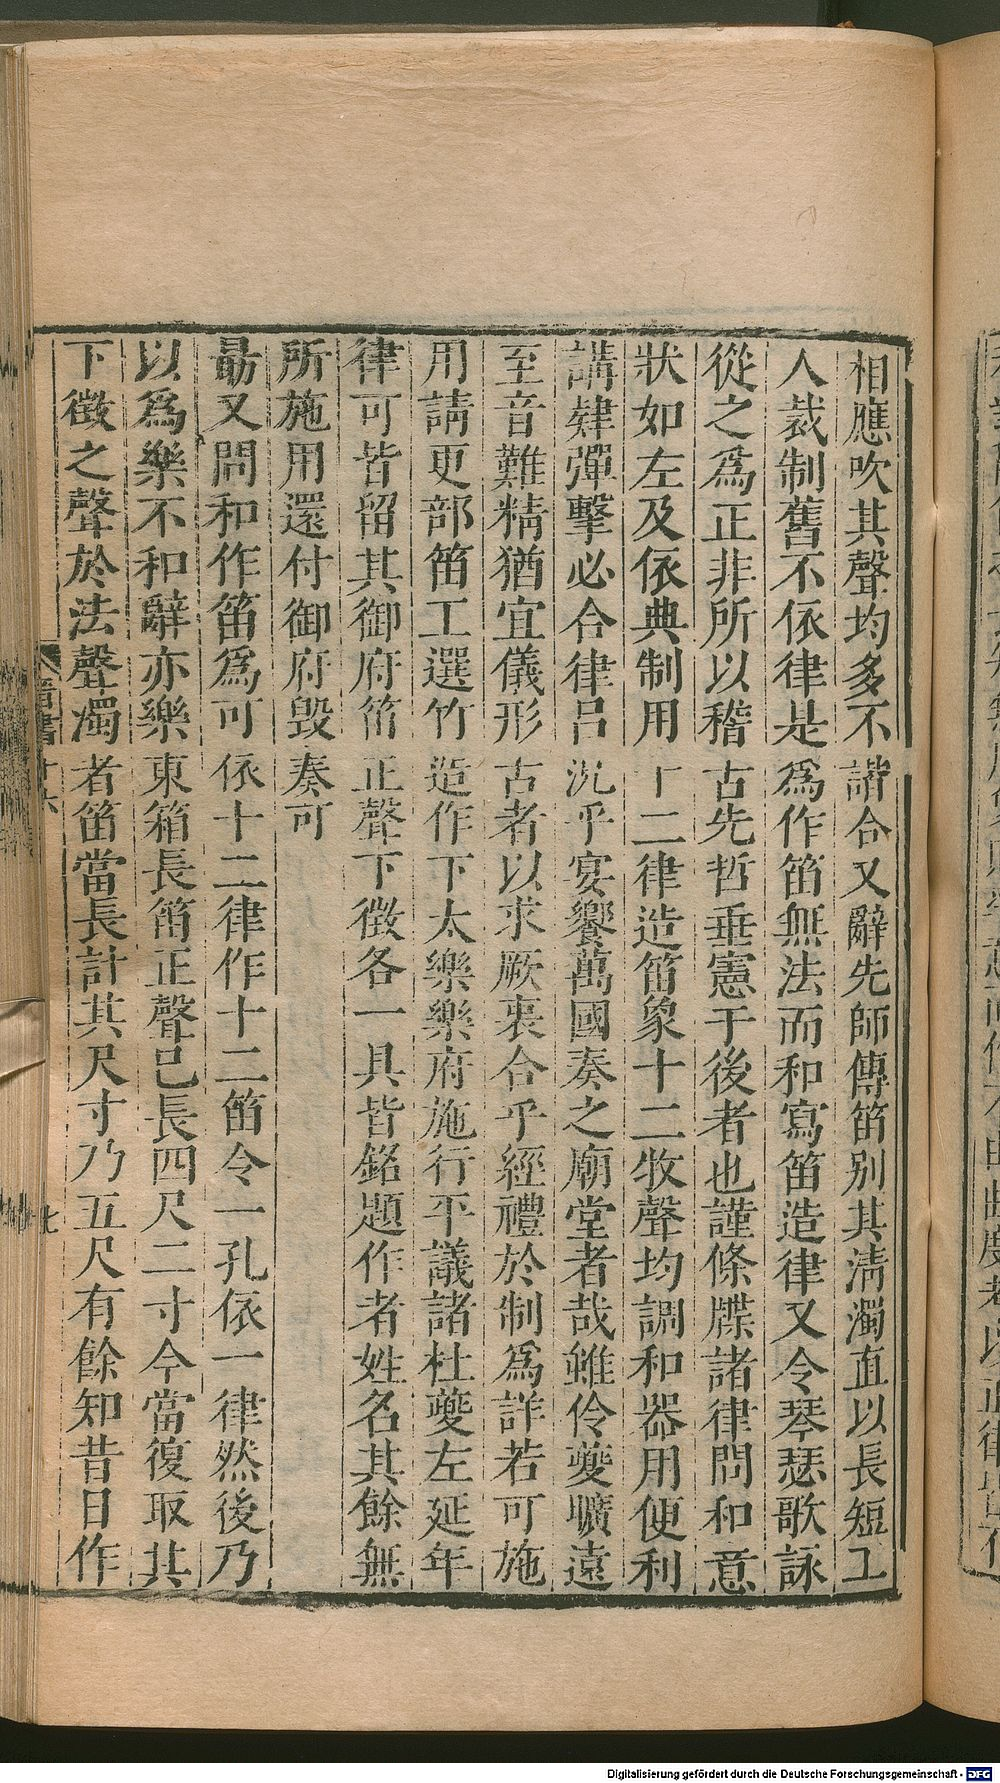 相應吹其聲均多不諧合又辭先師傳笛別其清濁直以長短工
人裁制舊不依律是爲作笛無法而和寫笛造律又令琴瑟歌詠
從之爲正非所以稽古先哲垂憲于後者也謹條牒諸律問和意
狀如左及依典制用十二律造笛象十二枚聲均調和器用便利
講肄彈擊必合律呂況乎宴饗萬國奏之廟堂者哉雖伶夔曠遠
至音難精猶宜儀形古者以求厥衷合乎經禮於制爲詳若可施
用請更部笛工選竹造作下太樂樂府施行平議諸杜夔左延年
律可皆留其御府笛正聲下徵各一具皆銘題作者姓名其餘無
所施用還付御府毀奏可
勗又問和作笛爲可依十二律作十二笛令一孔依一律然後乃
以爲樂不和辭亦樂東箱長笛正聲已長四尺二寸今當復取其
下徵之聲於法聲濁者笛當長計其尺寸乃五尺有餘知昔日作
晉書十六
七
Digitalisierung gefördert durch die Deutsche Forschungsgemeinschaft - DFG